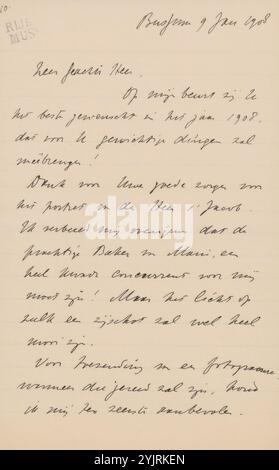 RIJKS
MUS
Bussum 9 Jan 1908
Zeer geachte Heer.
Op mijn beurt zij U
het beste gewenscht in het jaar 1908.
dat voor U gewichtige dingen zal
meebrengen!
Dank voor Uwe goede zorgen voor
het portret de Heer Jacob.
Ik verbeeld mij overigens dat de
prachtige in een
heel concurrent voor mij
moet zijn! Maar het licht op
zulk een zal wel heel
mooi zijn.
Voor toezending van een fotogramme
wanneer die gereed zal zijn, houd
ik mij ten zeerste aanbevolen.
alamy
Image ID: 2YJRKEN
www.alamy.com